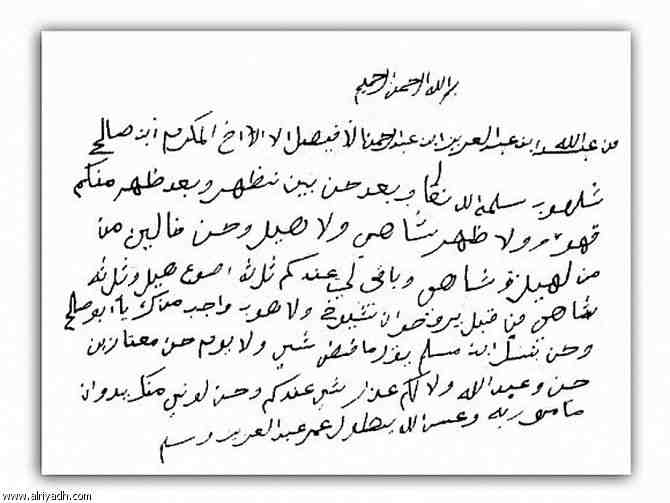 بسم الله الرحمن الرحيم
من عبدالله ابن عبدالعزيز ابن عبدالرحمن الافيصل الا الاخ المكرم ابن صالح
شلهوب سلمه الله تعالا وبعد حن بين نظهر وبعد ظهر منكم
قهوه ولا ظهر شاهي ولا هيل وحن خالين من
من لهيل و شاهي وباقي لي عندكم ثلاثة اصوع هيل وثلاثة
شاهي من قبل يروحوان شيوخ ولا هوب واجب منك يا ابو صالح
وحن ابن مسلم يقول ما شي ولا يوم حن معتازين
حن وعبدالله ولا لكم عذار شي عندكم وحن منك بدوان
ما وعسى الله يطول عمر عبدالعزيز وسلم
www.alriyadh.com